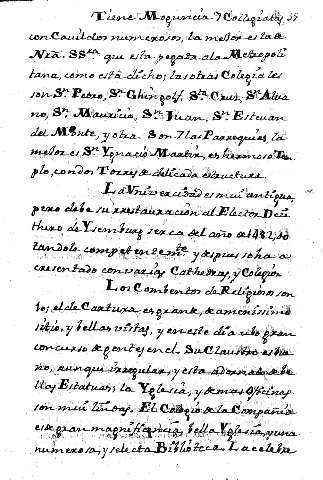 Tiene Moguncia 7 Collegiales, 55
con Cavildos numerosos, la mejor es la de
Nrã. SSra. que esta pegada ala Metropoli
tana, como está dicho; las otras Colegiales
son Sn. Pedro, Sn. Ghingolf, Sta. Cruz, Sn. Alva
no, Sn. Mauricio, Sn. Juan, Sn. Estevan
del Monte, y otra. Son 7 las Parroquias, la
mejor es Sn. Ygnacio Martir, es hermoso Tem
plo, con dos Torres de delicada estructura.
La Vniversidad es mui antigua,
pero debe su rrestauracion al Elector Diet
thero de Ysemburg serca del año de 1482, do
tandola competentemte. y despues se ha a
cresentado con varias Cathedras, y Colegios
Los Combentos de Religiosos son
el de Cartuxa es grande, de amenissimo
sitio, y bellas vistas, y en este dia ubo gran
concurso de gentes en el. Su Claustro es bue
no, aunque irregular, y esta adornado de be
llas Estatuas; la Yglesia, y demas Oficinas
son mui lindas. El Colegio de la Compañia
es de gran magnificencia, bella Yglesia, y una
numerosa, y selecta Biblioteca. La celebre